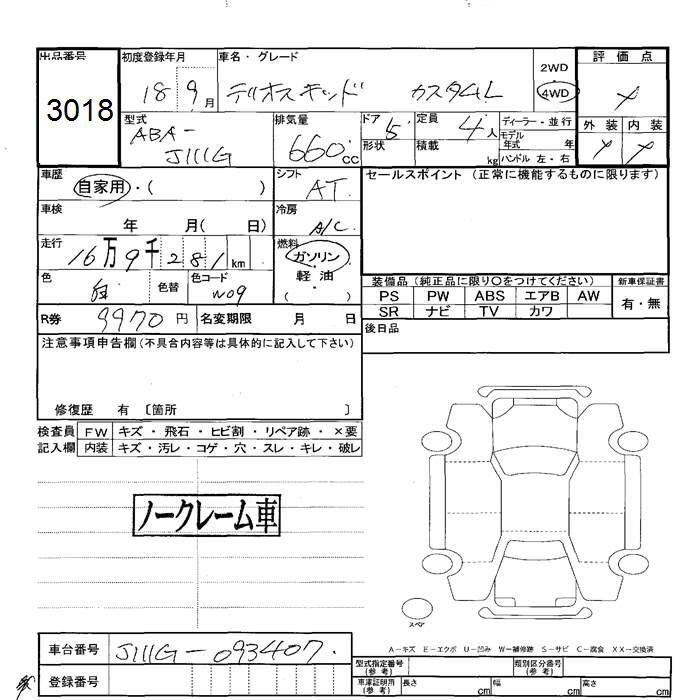 出品番号 3018
初度登録年月 18 9月
車名・グレード テリオスキッド カスタムL
2WD
4WD
評価点
外装 内装
型式 ABA-J111G
排気量 660cc
ドア 5
形状
定員 4人
積載 kg
ディーラー・並行
モデル年式 年
ハンドル 左・右
車歴 自家用・( )
シフト AT
セールスポイント (正常に機能するものに限ります)
車検 年 月( 日)
冷房 A/C
走行 16万9千281km
燃料 ガソリン
軽油
( )
色 白 色替 色コード W09
装備品 (純正品に限り○をつけてください)
新車保証書
PS PW ABS エアB AW
有・無
SR ナビ TV カワ
R券 9970円 名変期限 月 日
後日品
注意事項申告欄(不具合内容等は具体的に記入して下さい)
修復歴 有 〔箇所 〕
検査員 FW キズ・飛石・ヒビ割・リペア跡・×要
記入欄 内装 キズ・汚レ・コゲ・穴・スレ・キレ・破レ
ノークレーム車
スペア
A-キズ E-エクボ U-凹み W-補修跡 S-サビ C-腐食 XX-交換済
車台番号 J111G-093407
登録番号
型式指定番号(参考) 類別区分番号(参考)
車庫証明用(参考) 長さ cm 幅 cm 高さ cm